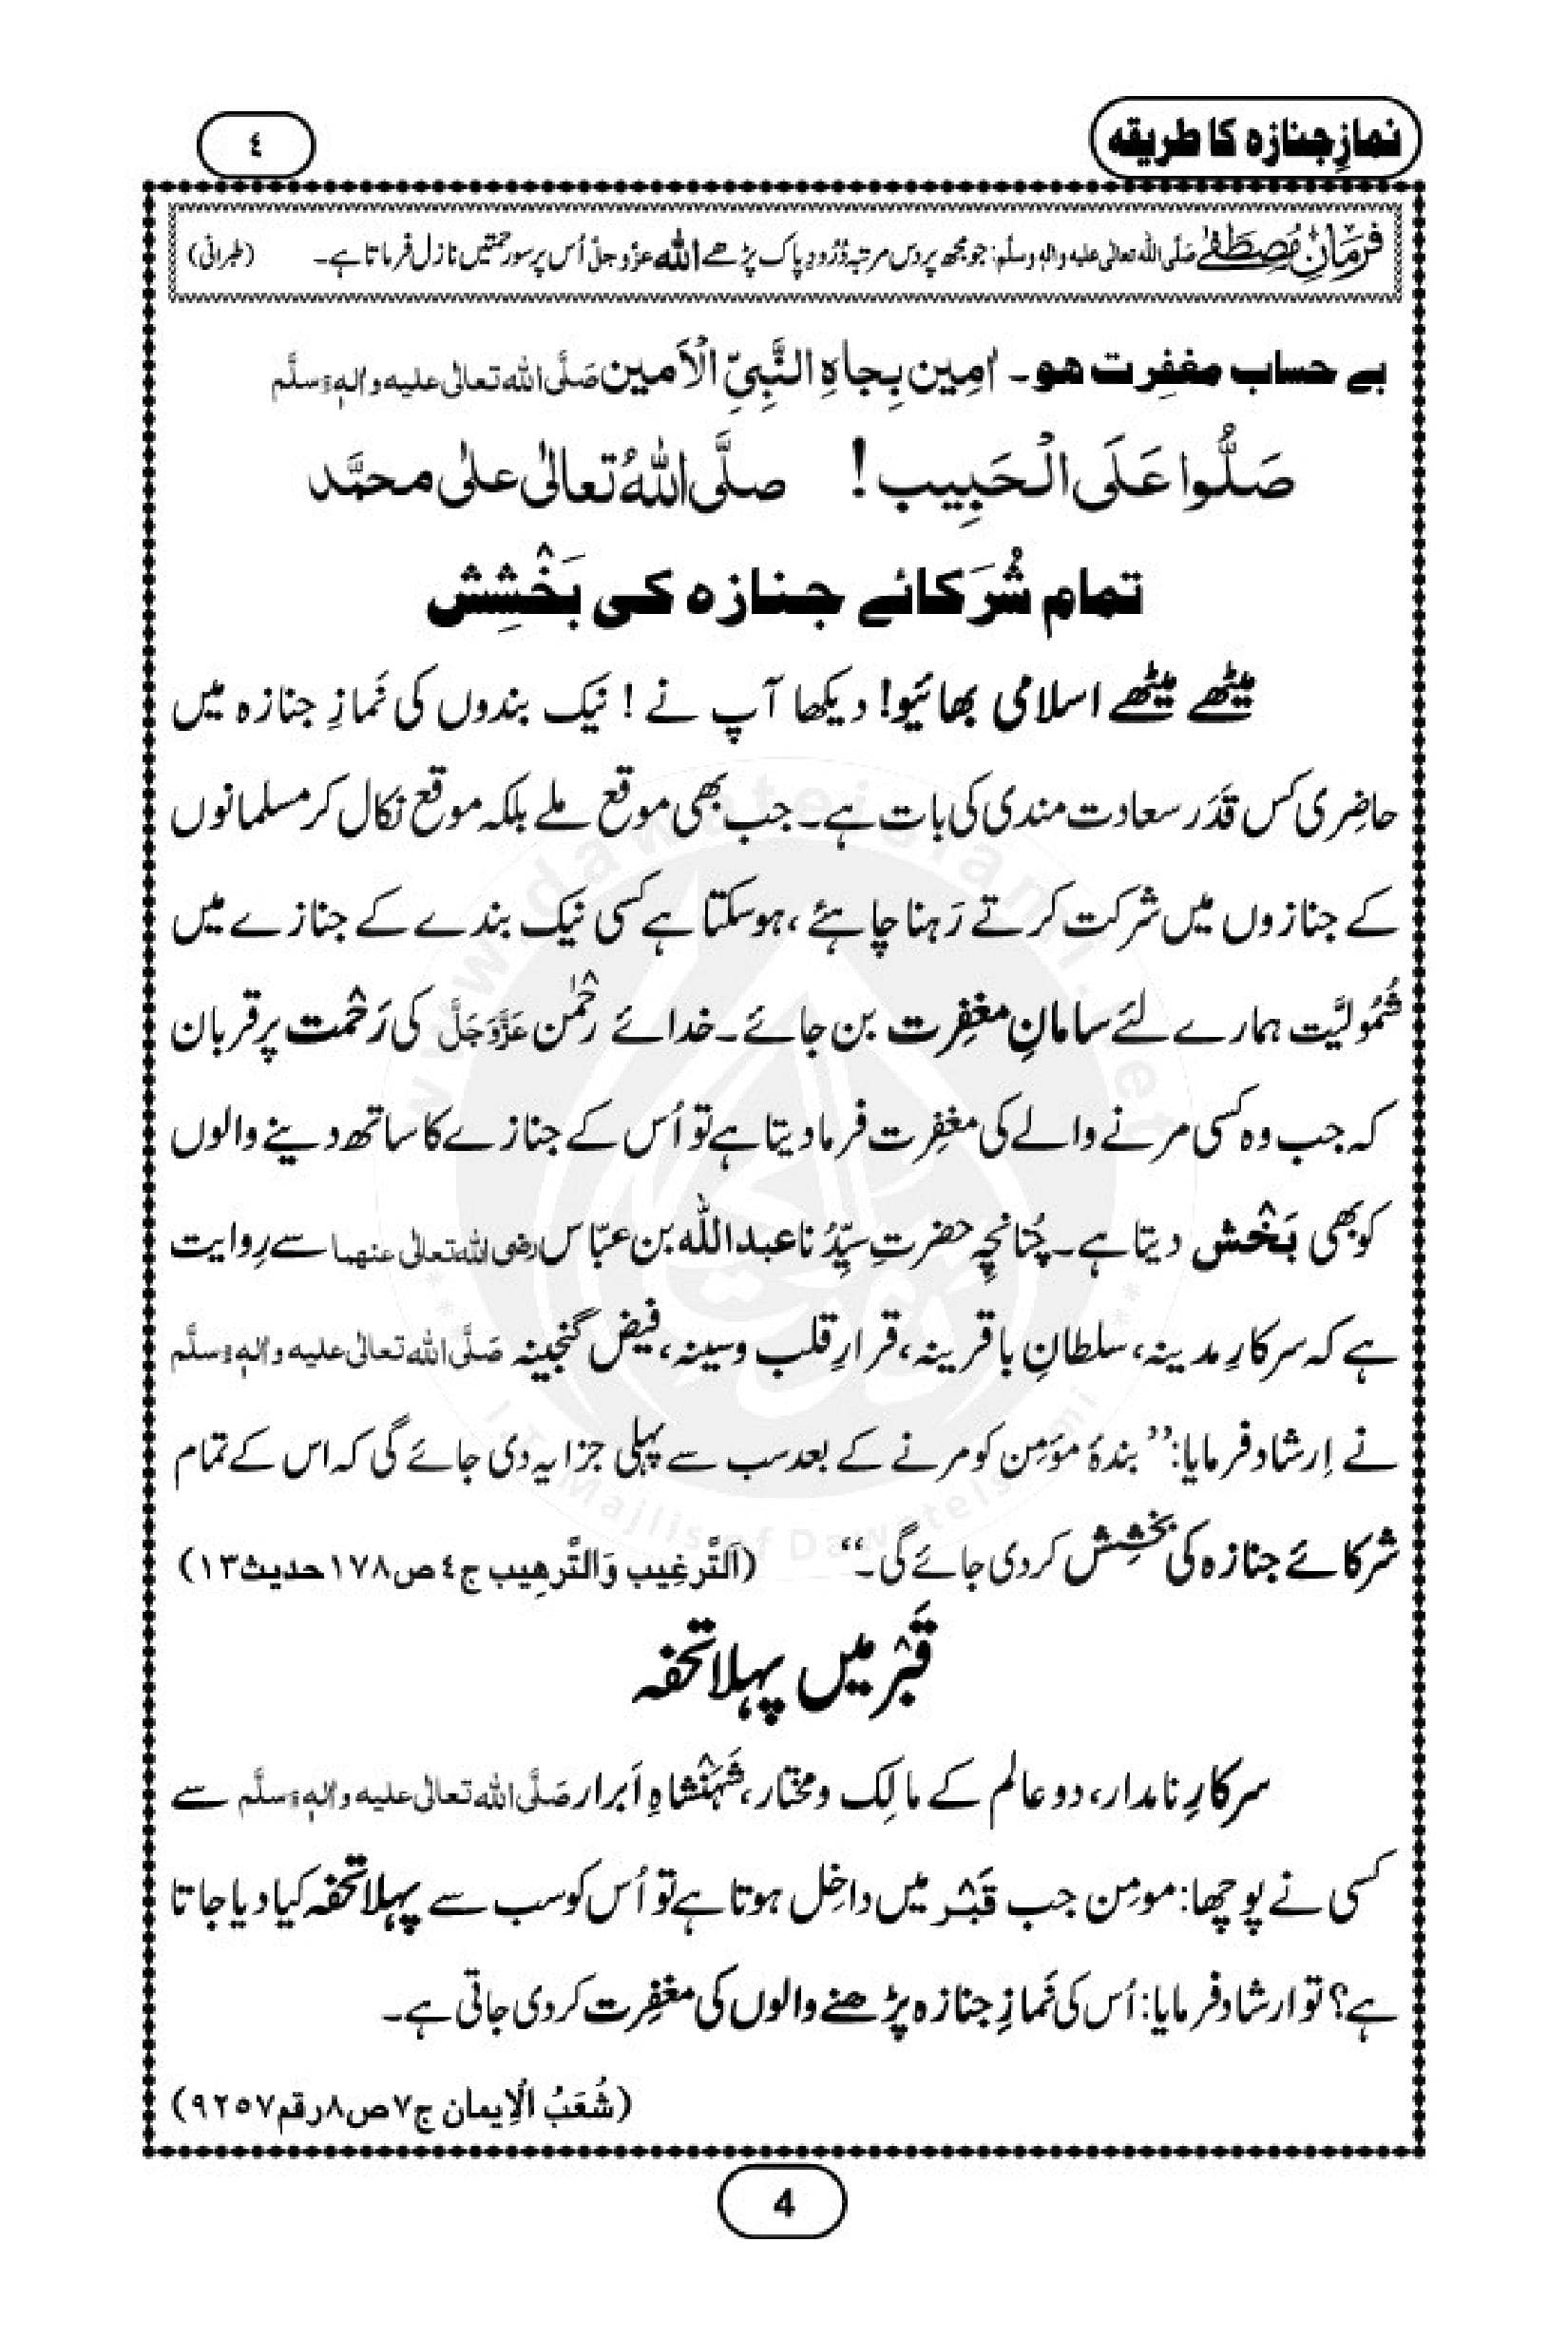 نمازِ جنازہ کا طریقہ
٤
فرمانِ مصطفےٰ صَلَّی اللہ تعالٰی علیہ واٰلہٖ وسلَّم: جو مجھ پر دس مرتبہ دُرُودِ پاک پڑھے اللہ عزوجل اُس پر سو رحمتیں نازل فرماتا ہے۔ (طبرانی)
بے حساب مغفِرت ھو۔ اٰمِین بِجاہِ النَّبِیِّ الْاَمین صَلَّی اللہ تعالٰی علیہ واٰلہٖ وسلَّم
صَلُّوا عَلَی الْحَبِیب! صلَّی اللہُ تعالٰی علٰی محمَّد
تمام شُرَکائے جنازہ کی بَخْشِش
میٹھے میٹھے اسلامی بھائیو! دیکھا آپ نے! نیک بندوں کی نَمازِ جنازہ میں
حاضِری کس قَدَر سعادت مندی کی بات ہے۔ جب بھی موقع ملے بلکہ موقع نکال کر مسلمانوں
کے جنازوں میں شرکت کرتے رَہنا چاہئے، ہو سکتا ہے کسی نیک بندے کے جنازے میں
شُمُولیَّت ہمارے لئے سامانِ مغفِرت بن جائے۔ خدائے رَحْمٰن عَزَّوَجَلَّ کی رَحْمت پر قربان
کہ جب وہ کسی مرنے والے کی مغفِرت فرما دیتا ہے تو اُس کے جنازے کا ساتھ دینے والوں
کو بھی بَخْش دیتا ہے۔ چُنانچِہ حضرتِ سیِّدُنا عبداللہ بن عبّاس رضی اللہ تعالٰی عنہما سے رِوایت
ہے کہ سرکارِ مدینہ، سلطانِ باقرینہ، قرارِ قلب وسینہ، فیض گنجینہ صَلَّی اللہ تعالٰی علیہ واٰلہٖ وسلَّم
نے اِرشاد فرمایا: ’’بندۂ مؤمِن کو مرنے کے بعد سب سے پہلی جزا یہ دی جائے گی کہ اس کے تمام
شرکائے جنازہ کی بخشِش کر دی جائے گی۔‘‘ (اَلتَّرغِیب وَالتَّرھِیب ج٤ ص۱۷۸ حدیث۱۳)
قَبْر میں پہلا تحفہ
سرکارِ نامدار، دو عالم کے مالِک ومختار، شَہَنْشاہِ اَبرار صَلَّی اللہ تعالٰی علیہ واٰلہٖ وسلَّم سے
کسی نے پوچھا: مومِن جب قَبْر میں داخِل ہوتا ہے تو اُس کو سب سے پہلا تحفہ کیا دیا جاتا
ہے؟ تو ارشاد فرمایا: اُس کی نَمازِ جنازہ پڑھنے والوں کی مغفِرت کر دی جاتی ہے۔
(شُعَبُ الْاِیمان ج۷ ص۸ رقم۹۲۵۷)
4
www.dawateislami.net
I.T Majlis of DawateIslami